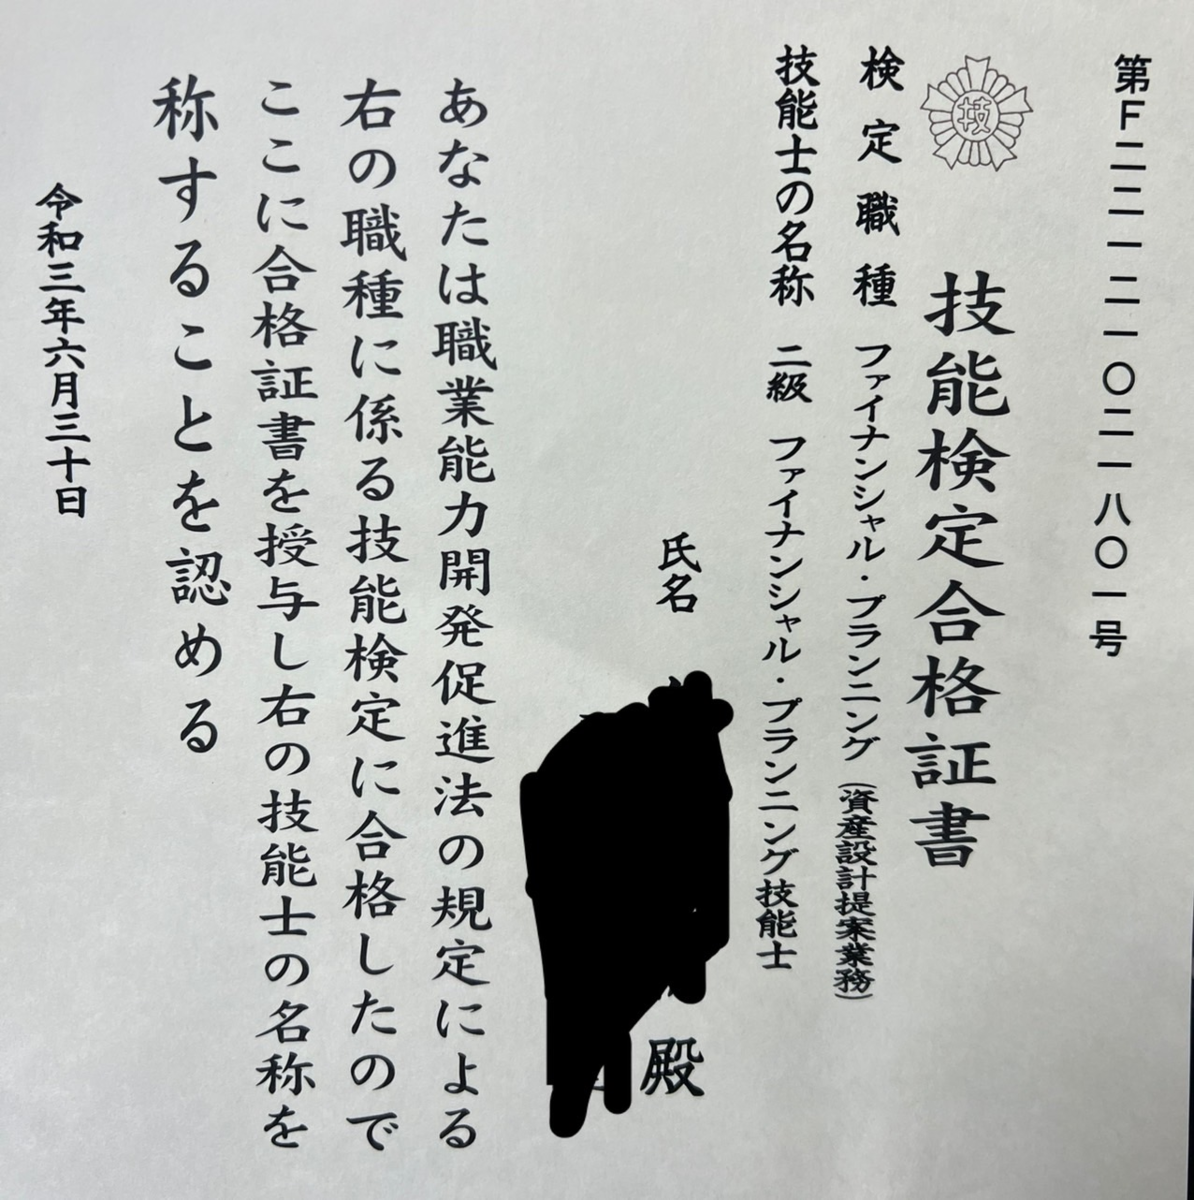 第F二二一二一〇二一八〇一号
技
技能検定合格証書
検定職種 ファイナンシャル・プランニング(資産設計提案業務)
技能士の名称 二級 ファイナンシャル・プランニング技能士
氏名
殿
あなたは職業能力開発促進法の規定による
右の職種に係る技能検定に合格したので
ここに合格証書を授与し右の技能士の名称を
称することを認める
令和三年六月三十日